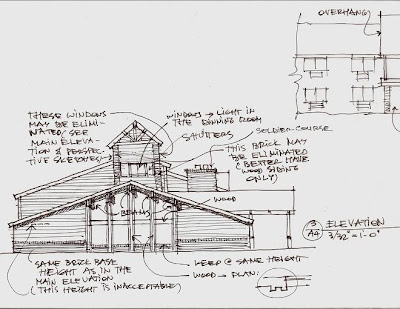 OVERHANG
THESE WINDOWS
MAY BE ELIMI-
NATED/SEE
MAIN ELEVA-
TION & PERSPEC-
TIVE SKETCHES
WINDOWS → LIGHT IN
THE DINING ROOM
SHUTTERS
SOLDIER-COURSE
THIS BRICK MAY
BE ELIMINATED
(BETTER HAVE
WOOD SIDING
ONLY)
WOOD
BEAMS
SAME BRICK BASE
HEIGHT AS IN THE
MAIN ELEVATION
(THIS HEIGHT IS INACCEPTABLE)
KEEP @ SAME HEIGHT
WOOD → PLAN:
3 ELEVATION
A4 3/32"=1'-0"